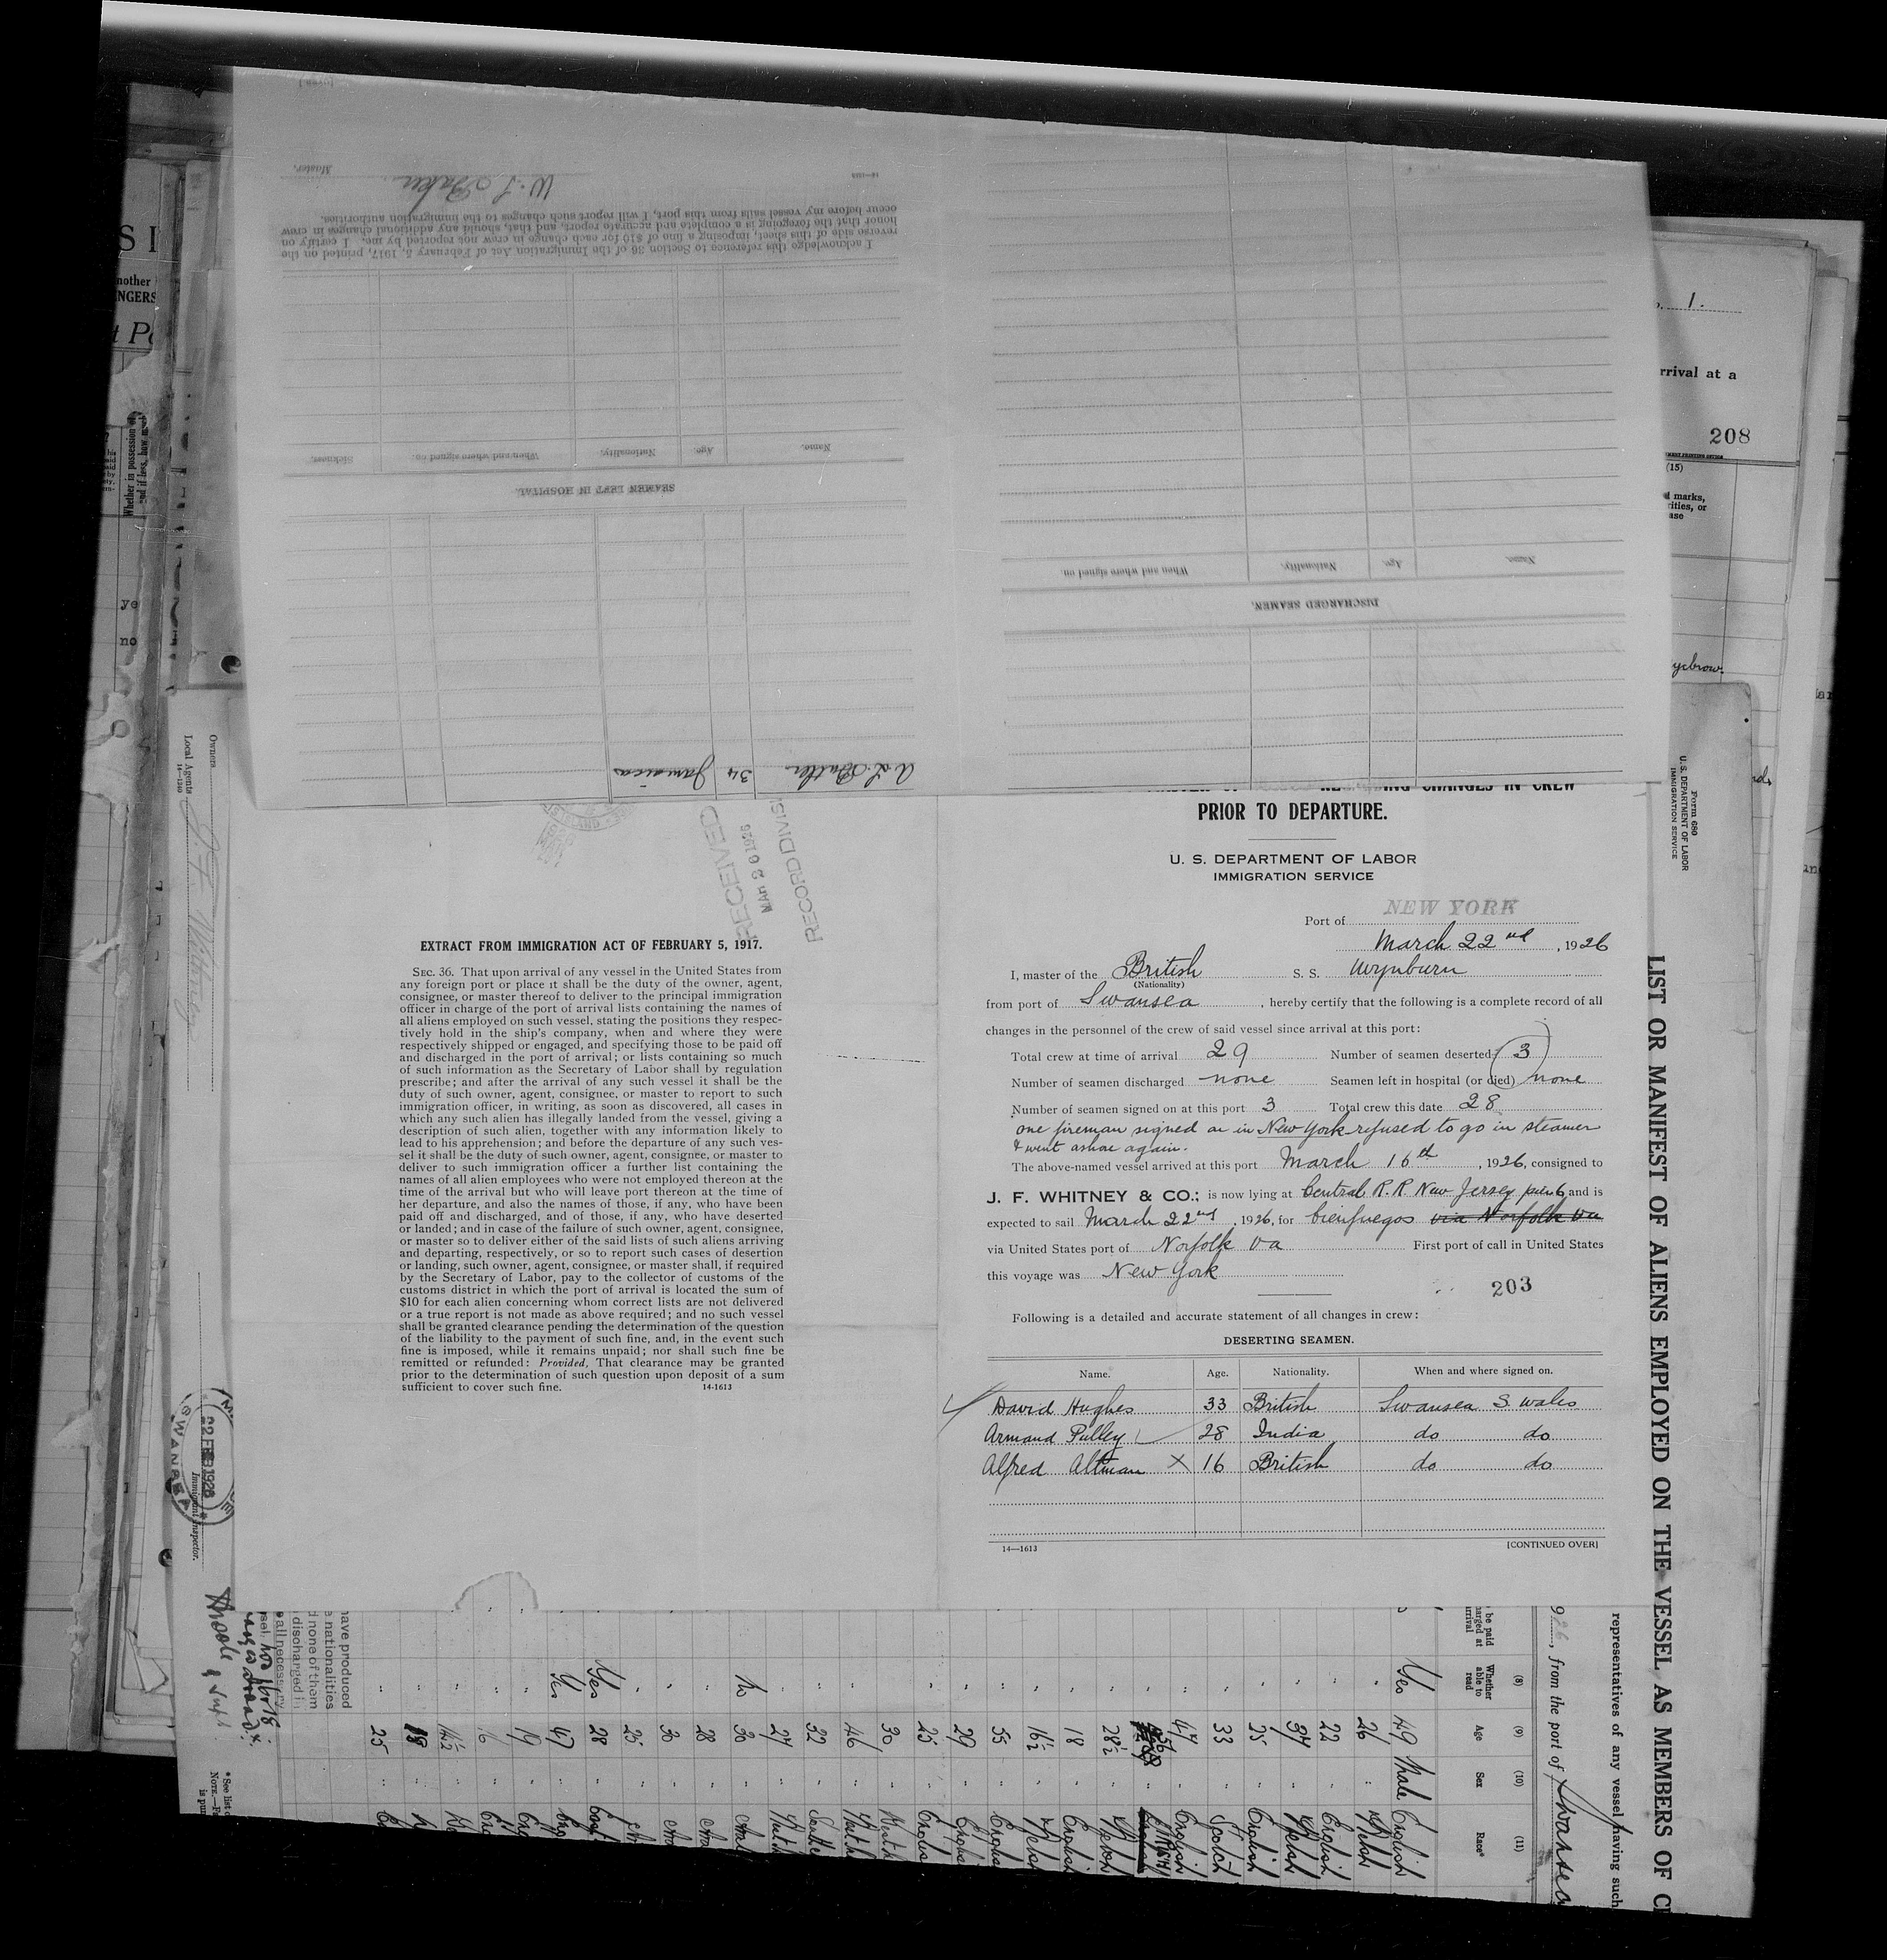 PRIOR TO DEPARTURE.
U. S. DEPARTMENT OF LABOR
IMMIGRATION SERVICE
Port of NEW YORK
March 22nd, 1926
I, master of the British S. S. Wynburn
(Nationality)
from port of Swansea, hereby certify that the following is a complete record of all
changes in the personnel of the crew of said vessel since arrival at this port:
Total crew at time of arrival 29 Number of seamen deserted 3
Number of seamen discharged none Seamen left in hospital (or died) none
Number of seamen signed on at this port 3 Total crew this date 28
one fireman signed on in New York refused to go in steamer
& went ashore again.
The above-named vessel arrived at this port March 16th, 1926, consigned to
J. F. WHITNEY & CO.; is now lying at Central R.R. New Jersey pier 6 and is
expected to sail March 22nd, 1926, for Cienfuegos via Norfolk Va
via United States port of Norfolk Va First port of call in United States
this voyage was New York
203
Following is a detailed and accurate statement of all changes in crew:
DESERTING SEAMEN.
Name. Age. Nationality. When and where signed on.
David Hughes 33 British Swansea S. Wales
Armand Pulley 28 India do do
Alfred Altman X 16 British do do
14—1613 [CONTINUED OVER]
RECEIVED
MAR 26 1926
RECORD DIVIS
EXTRACT FROM IMMIGRATION ACT OF FEBRUARY 5, 1917.
SEC. 36. That upon arrival of any vessel in the United States from
any foreign port or place it shall be the duty of the owner, agent,
consignee, or master thereof to deliver to the principal immigration
officer in charge of the port of arrival lists containing the names of
all aliens employed on such vessel, stating the positions they respec-
tively hold in the ship's company, when and where they were
respectively shipped or engaged, and specifying those to be paid off
and discharged in the port of arrival; or lists containing so much
of such information as the Secretary of Labor shall by regulation
prescribe; and after the arrival of any such vessel it shall be the
duty of such owner, agent, consignee, or master to report to such
immigration officer, in writing, as soon as discovered, all cases in
which any such alien has illegally landed from the vessel, giving a
description of such alien, together with any information likely to
lead to his apprehension; and before the departure of any such ves-
sel it shall be the duty of such owner, agent, consignee, or master to
deliver to such immigration officer a further list containing the
names of all alien employees who were not employed thereon at the
time of the arrival but who will leave port thereon at the time of
her departure, and also the names of those, if any, who have been
paid off and discharged, and of those, if any, who have deserted
or landed; and in case of the failure of such owner, agent, consignee,
or master so to deliver either of the said lists of such aliens arriving
and departing, respectively, or so to report such cases of desertion
or landing, such owner, agent, consignee, or master shall, if required
by the Secretary of Labor, pay to the collector of customs of the
customs district in which the port of arrival is located the sum of
$10 for each alien concerning whom correct lists are not delivered
or a true report is not made as above required; and no such vessel
shall be granted clearance pending the determination of the question
of the liability to the payment of such fine, and, in the event such
fine is imposed, while it remains unpaid; nor shall such fine be
remitted or refunded: Provided, That clearance may be granted
prior to the determination of such question upon deposit of a sum
sufficient to cover such fine. 14-1613
A L Butler 34 Jamaica
DISCHARGED SEAMEN.
Name. Age. Nationality. When and where signed on.
SEAMEN LEFT IN HOSPITAL.
Name. Age. Nationality. When and where signed on. Sickness.
I acknowledge this reference to Section 36 of the Immigration Act of February 5, 1917, printed on the
reverse side of this sheet, imposing a fine of $10 for each change in crew not reported by me. I certify on
honor that the foregoing is a complete and accurate report, and that, should any additional changes in crew
occur before my vessel sails from this port, I will report such changes to the immigration authorities.
Master.
(over)
1.
rrival at a
208
(15)
marks,
ye
no
Form 680
U. S. DEPARTMENT OF LABOR
IMMIGRATION SERVICE
LIST OR MANIFEST OF ALIENS EMPLOYED ON THE VESSEL AS MEMBERS OF
representatives of any vessel having such
, from the port of Swansea
(8) (9) (10) (11)
Whether able to read Age Sex Race*
Yes 49 Male English
26 Welsh
22 English
34 Welsh
25 English
33 Scotch
47 English
28½ Welsh
18 English
16½ Welsh
55 English
29 English
25 English
Owners
Local Agents J. F. Whitney
Immigrant Inspector.
22 FEB 1926
SWANSEA
have produced
nationalities
none of them
discharged in
all necessary